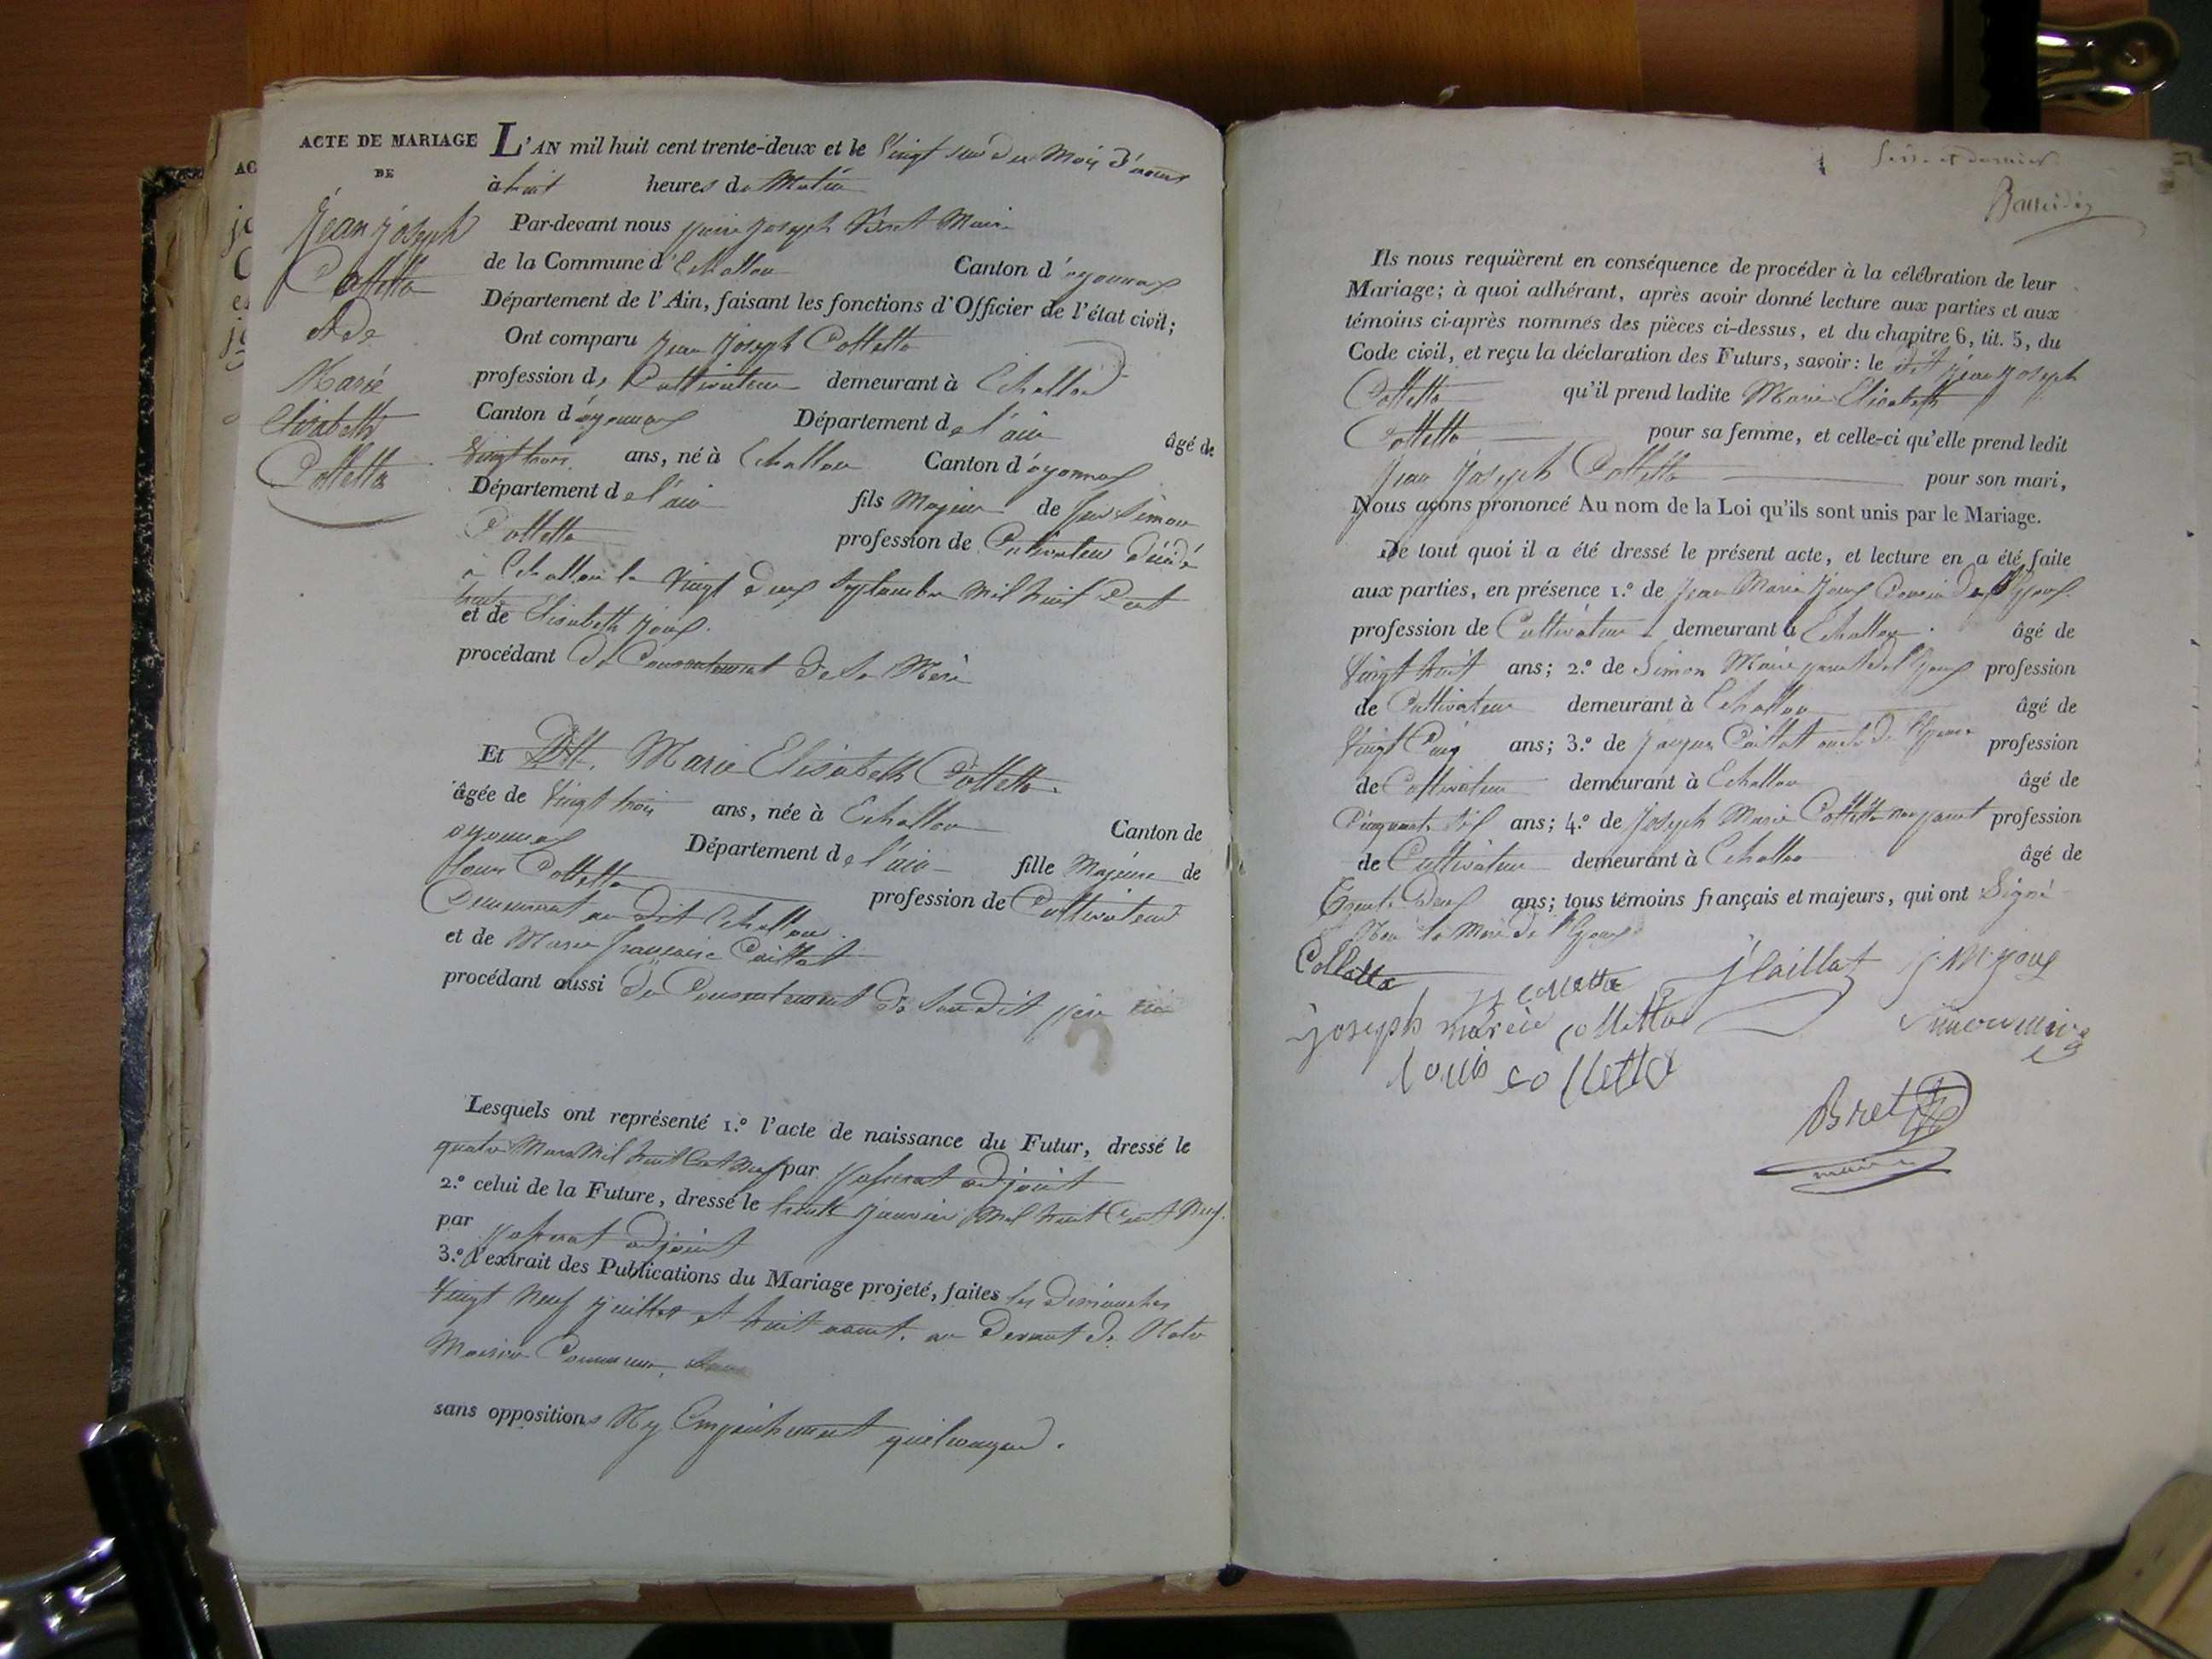 ACTE DE MARIAGE
DE
Jean Joseph
Collette
Et de
Marie
Elisabeth
Collette
L'AN mil huit cent trente-deux et le Vingt du Mois d'aout
à huit heures du Matin
Par-devant nous pierre joseph Bret Maire
de la Commune d'Echallon Canton d'oyonnax
Département de l'Ain, faisant les fonctions d'Officier de l'état civil;
Ont comparu Jean Joseph Collette
profession de Cultivateur demeurant à Echallon
Canton d'oyonnax Département de l'ain âgé de
Vingt trois ans, né à Echallon Canton d'oyonnax
Département de l'ain fils Majeur de feu Simon
Collette profession de Cultivateur décédé
à Echallon le Vingt deux Septembre Mil huit Cent
trente
et de Elisabeth Joux
procédant du Consentement de sa Mère
Et Dlle. Marie Elisabeth Collette
âgée de Vingt trois ans, née à Echallon Canton de
oyonnax Département de l'ain fille Majeure de
Collette profession de Cultivateur
Demeurant au dit Echallon
et de Marie françoise Caillat
procédant aussi du Consentement de Sondit père
Lesquels ont représenté 1.º l'acte de naissance du Futur, dressé le
quatre Mars Mil huit Cent Neuf par adjoint
2.º celui de la Future, dressé le trente Janvier Mil huit Cent Neuf
par adjoint
3.º l'extrait des Publications du Mariage projeté, faites les Dimanches
Vingt Neuf juillet et huit aout. au Devant de Notre
Maison Commune,
sans oppositions Ny Empêchement quelconque.
et dernier
Ils nous requièrent en conséquence de procéder à la célébration de leur
Mariage; à quoi adhérant, après avoir donné lecture aux parties et aux
témoins ci-après nommés des pièces ci-dessus, et du chapitre 6, tit. 5, du
Code civil, et reçu la déclaration des Futurs, savoir: le dit Jean Joseph
Collette qu'il prend ladite Marie Elisabeth
Collette pour sa femme, et celle-ci qu'elle prend ledit
Jean Joseph Collette pour son mari,
Nous avons prononcé Au nom de la Loi qu'ils sont unis par le Mariage.
De tout quoi il a été dressé le présent acte, et lecture en a été faite
aux parties, en présence 1.º de Jean Marie Joux Cousin de l'Epoux
profession de Cultivateur demeurant à Echallon âgé de
Vingt huit ans; 2.º de Simon Maire parent de l'Epoux profession
de Cultivateur demeurant à Echallon âgé de
Vingt Cinq ans; 3.º de Jacques Caillat oncle de l'Epouse profession
de Cultivateur demeurant à Echallon âgé de
Cinquante Six ans; 4.º de Joseph Marie Collette non parent profession
de Cultivateur demeurant à Echallon âgé de
Trente Deux ans; tous témoins français et majeurs, qui ont Signé
Non la Mère de l'Epoux
Collette
JJ collette
J Caillat
j. M. joux
joseph marie collette
simon maire
Louis collette
Bret
maire